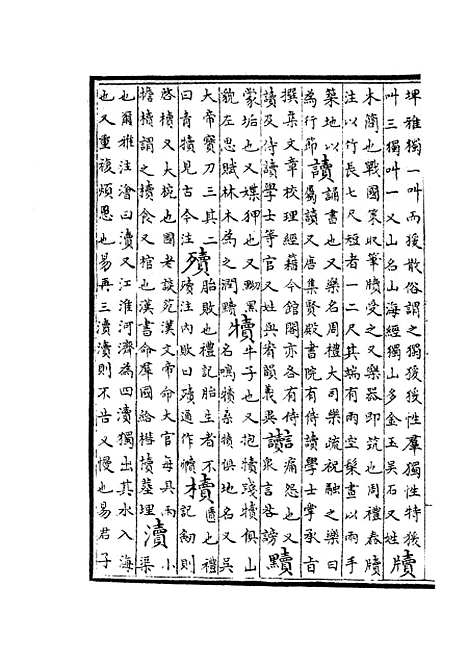 埤雅獨一叫而猨散俗謂之獨猨猨性羣獨性特猨
叫三獨叫一又山名山海經獨山多金玉吳石又姓
牘
木簡也戰國策收筆牘受之又樂器即筑也周禮舂牘
注以竹長七尺短者一二尺其端有兩空髤畫以兩手
築地以
為行節
讀
誦書也又樂名周禮大司樂流祝融之樂曰
屬讀又唐集賢殿書院有侍讀學士掌承旨
撰集文章校理經籍今館閣亦各有侍
讀及侍讀學士等官又姓與宥韻義異
讟
痛怨也又
衆言咎謗
黷
蒙垢也又媟狎也又黝黑
貌左思賦林木為之潤黷
犢
牛子也又抱犢殘犢俱山
名鳴犢桑犢俱地名又吳
大帝寶刀三其二
曰青犢見古今注
殰
胎敗也禮記胎生者不
殰注內敗曰殰通作贕
櫝
匱也禮
記劒則
啓櫝又大椀也國老談苑漢文帝命大官每具兩
擔櫝謂之犢食又棺也漢書命羣國給槥櫝葬埋
瀆
小
渠
也爾雅注澮曰瀆又江淮河濟為四瀆獨出其水入海
也又重複煩恩也易再三瀆瀆則不告又慢也易君子